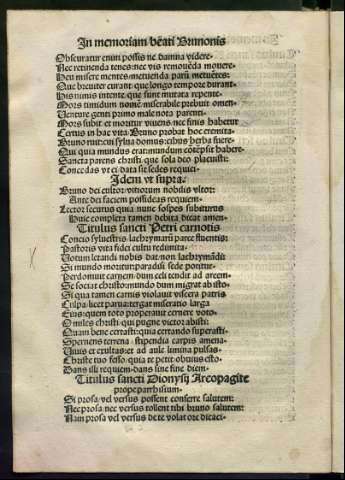 In memoriam beati Brunonis
Obscuratur enim possis ne damna videre·
Nec retinenda tenes: nec vis removēda movere·
Heu misere mentes metuenda parū metuētes:
Que breviter curāt que longo tempore durant·
His nimis intente que sunt mutata repente·
Mors timidum nomē miserabile prebuit omen·
Venture genti primo male nota parenti·
Mors subit et moritur vivens nec finis habetur
Certus in hac vita: Bruno probat hoc eremita·
Bruno nutritus sylva domus: cibus herba fuere·
Qui quia mundus erat: mundum cōtēpsit habere·
Sancta parens christi que sola deo placuisti:
Concedas vt ei data sit sedes requiei·
Idem vt supra·
Bruno dei cultor: vitiorum nobilis vltor:
Ante dei faciem possideas requiem·
Lector securus quia nunc sospes
Hunc completa tamen debita dicat amen·
Titulus sancti Petri carnotis
Concio sylvestris lachrymarū parce fluentis:
Pastoris vita fidei cultu redimita·
Votum letandi nobis dat: non lachrymādi
Si mundo moritur: paradisi sede potitur·
Perdomuit carnem· dum celi tendit ad arcem·
Se sociat christo: mundo dum migrat ab isto·
Si qua tamen carnis violavit viscera patris
Culpa: licet parua: tergat miseratio larga
Eius: quem toto properavit cernere voto·
O miles christi qui pugne victor abisti:
Quam bene certasti: quia certando superasti·
Spernens terrena· stipendia carpis amena·
Vivis et exultas: et ad aule limina pulsas·
Christe tuo famulo qui te petit obvius esto·
Dans illi requiem· dans sine fine diem·
Titulus sancti Dionysij Areopagite
prope parrhisium·
Si prosa/vel versus possent conferre salutem:
Nec prosa nec versus tollent tibi bruno salutem:
Nam prosa vel versus de te volat ore dicaci·